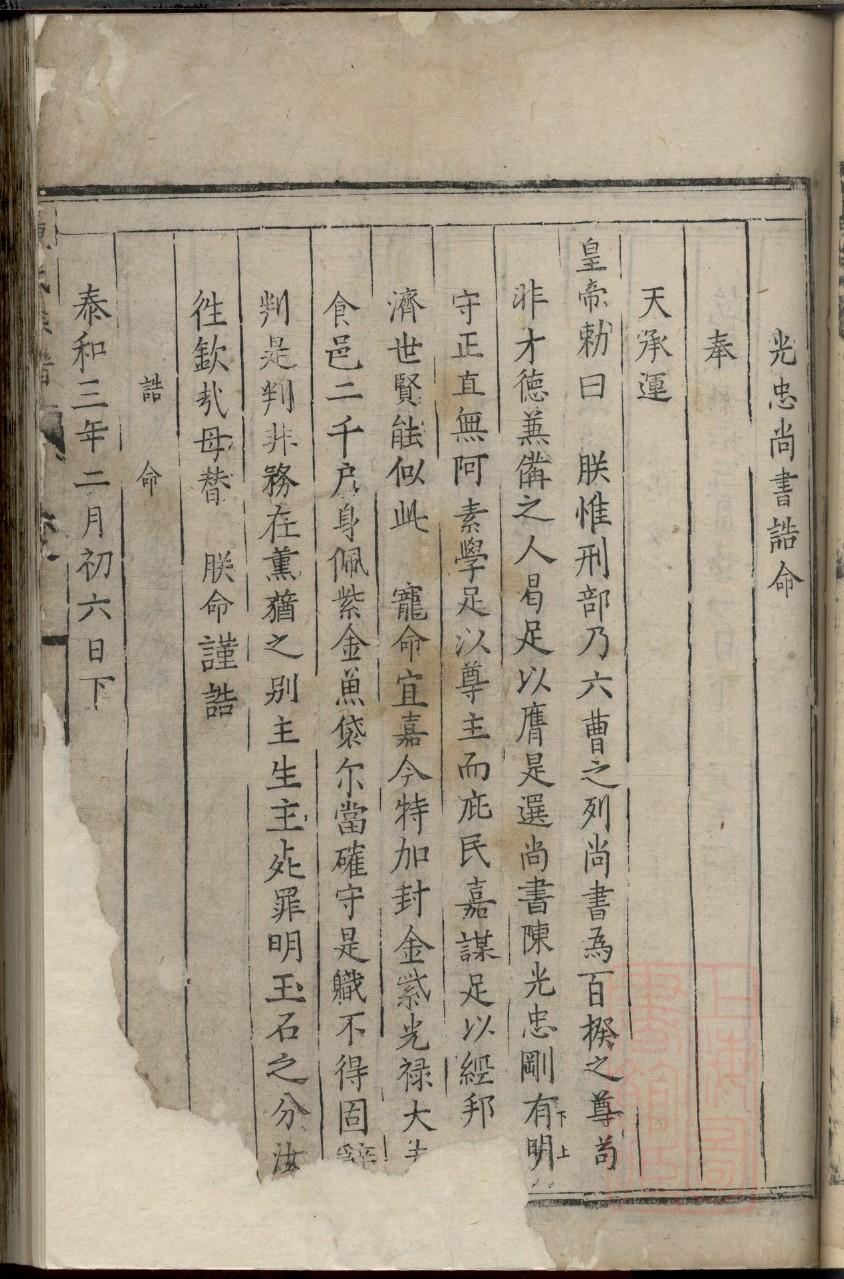 光忠尚書誥命
奉
天承運
皇帝勅曰 朕惟刑部乃六曹之列尚書為百揆之尊苟
非才德兼備之人曷足以膺是選尚書陳光忠剛有明下上
守正直無阿素學足以尊主而庇民嘉謀足以經邦
濟世賢能似此 寵命宜嘉今特加封金紫光禄大
食邑二千户身佩紫金魚袋尔當確守是職不得固辭
判是判非務在薰蕕之别主生主死罪明玉石之分汝
徃欽㢤毋替 朕命謹誥
誥命
泰和三年二月初六日下
氏族譜
上海圖書館藏